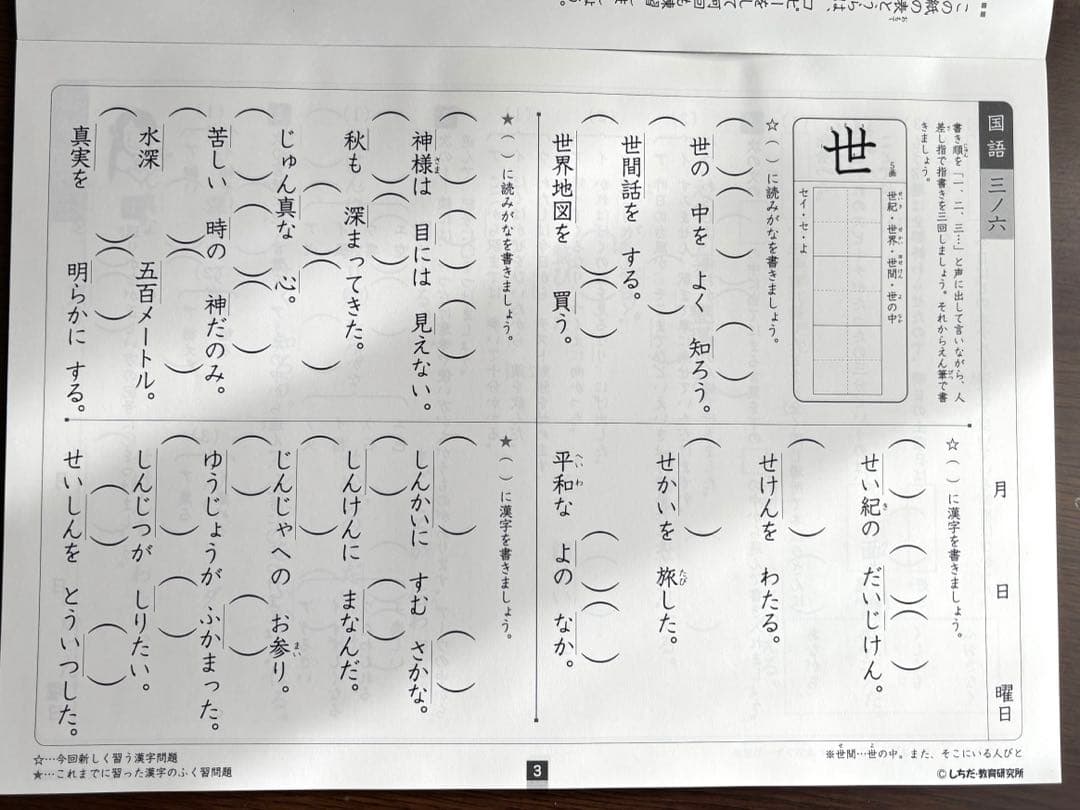 この紙の表とうらは、コピーをして何回も練習しましょう。
国語 三ノ六
月 日 曜日
書き順を「一、二、三…」と声に出して言いながら、人
差し指で指書きを三回しましょう。それからえん筆で書
きましょう。
世
5画
世紀・世界・世間・世の中
セイ・セ・よ
☆（ ）に読みがなを書きましょう。
世の 中を よく 知ろう。
世間話を する。
世界地図を 買う。
★（ ）に読みがなを書きましょう。
神様は 目には 見えない。
秋も 深まってきた。
じゅん真な 心。
苦しい 時の 神だのみ。
水深 五百メートル。
真実を 明らかに する。
☆（ ）に漢字を書きましょう。
せい紀の だいじけん。
せけんを わたる。
せかいを 旅した。
平和な よの なか。
★（ ）に漢字を書きましょう。
しんかいに すむ さかな。
しんけんに まなんだ。
じんじゃへの お参り。
ゆうじょうが ふかまった。
しんじつが しりたい。
せいしんを とういつした。
☆…今回新しく習う漢字問題
★…これまでに習った漢字のふく習問題
3
※世間…世の中。また、そこにいる人びと
© しちだ・教育研究所